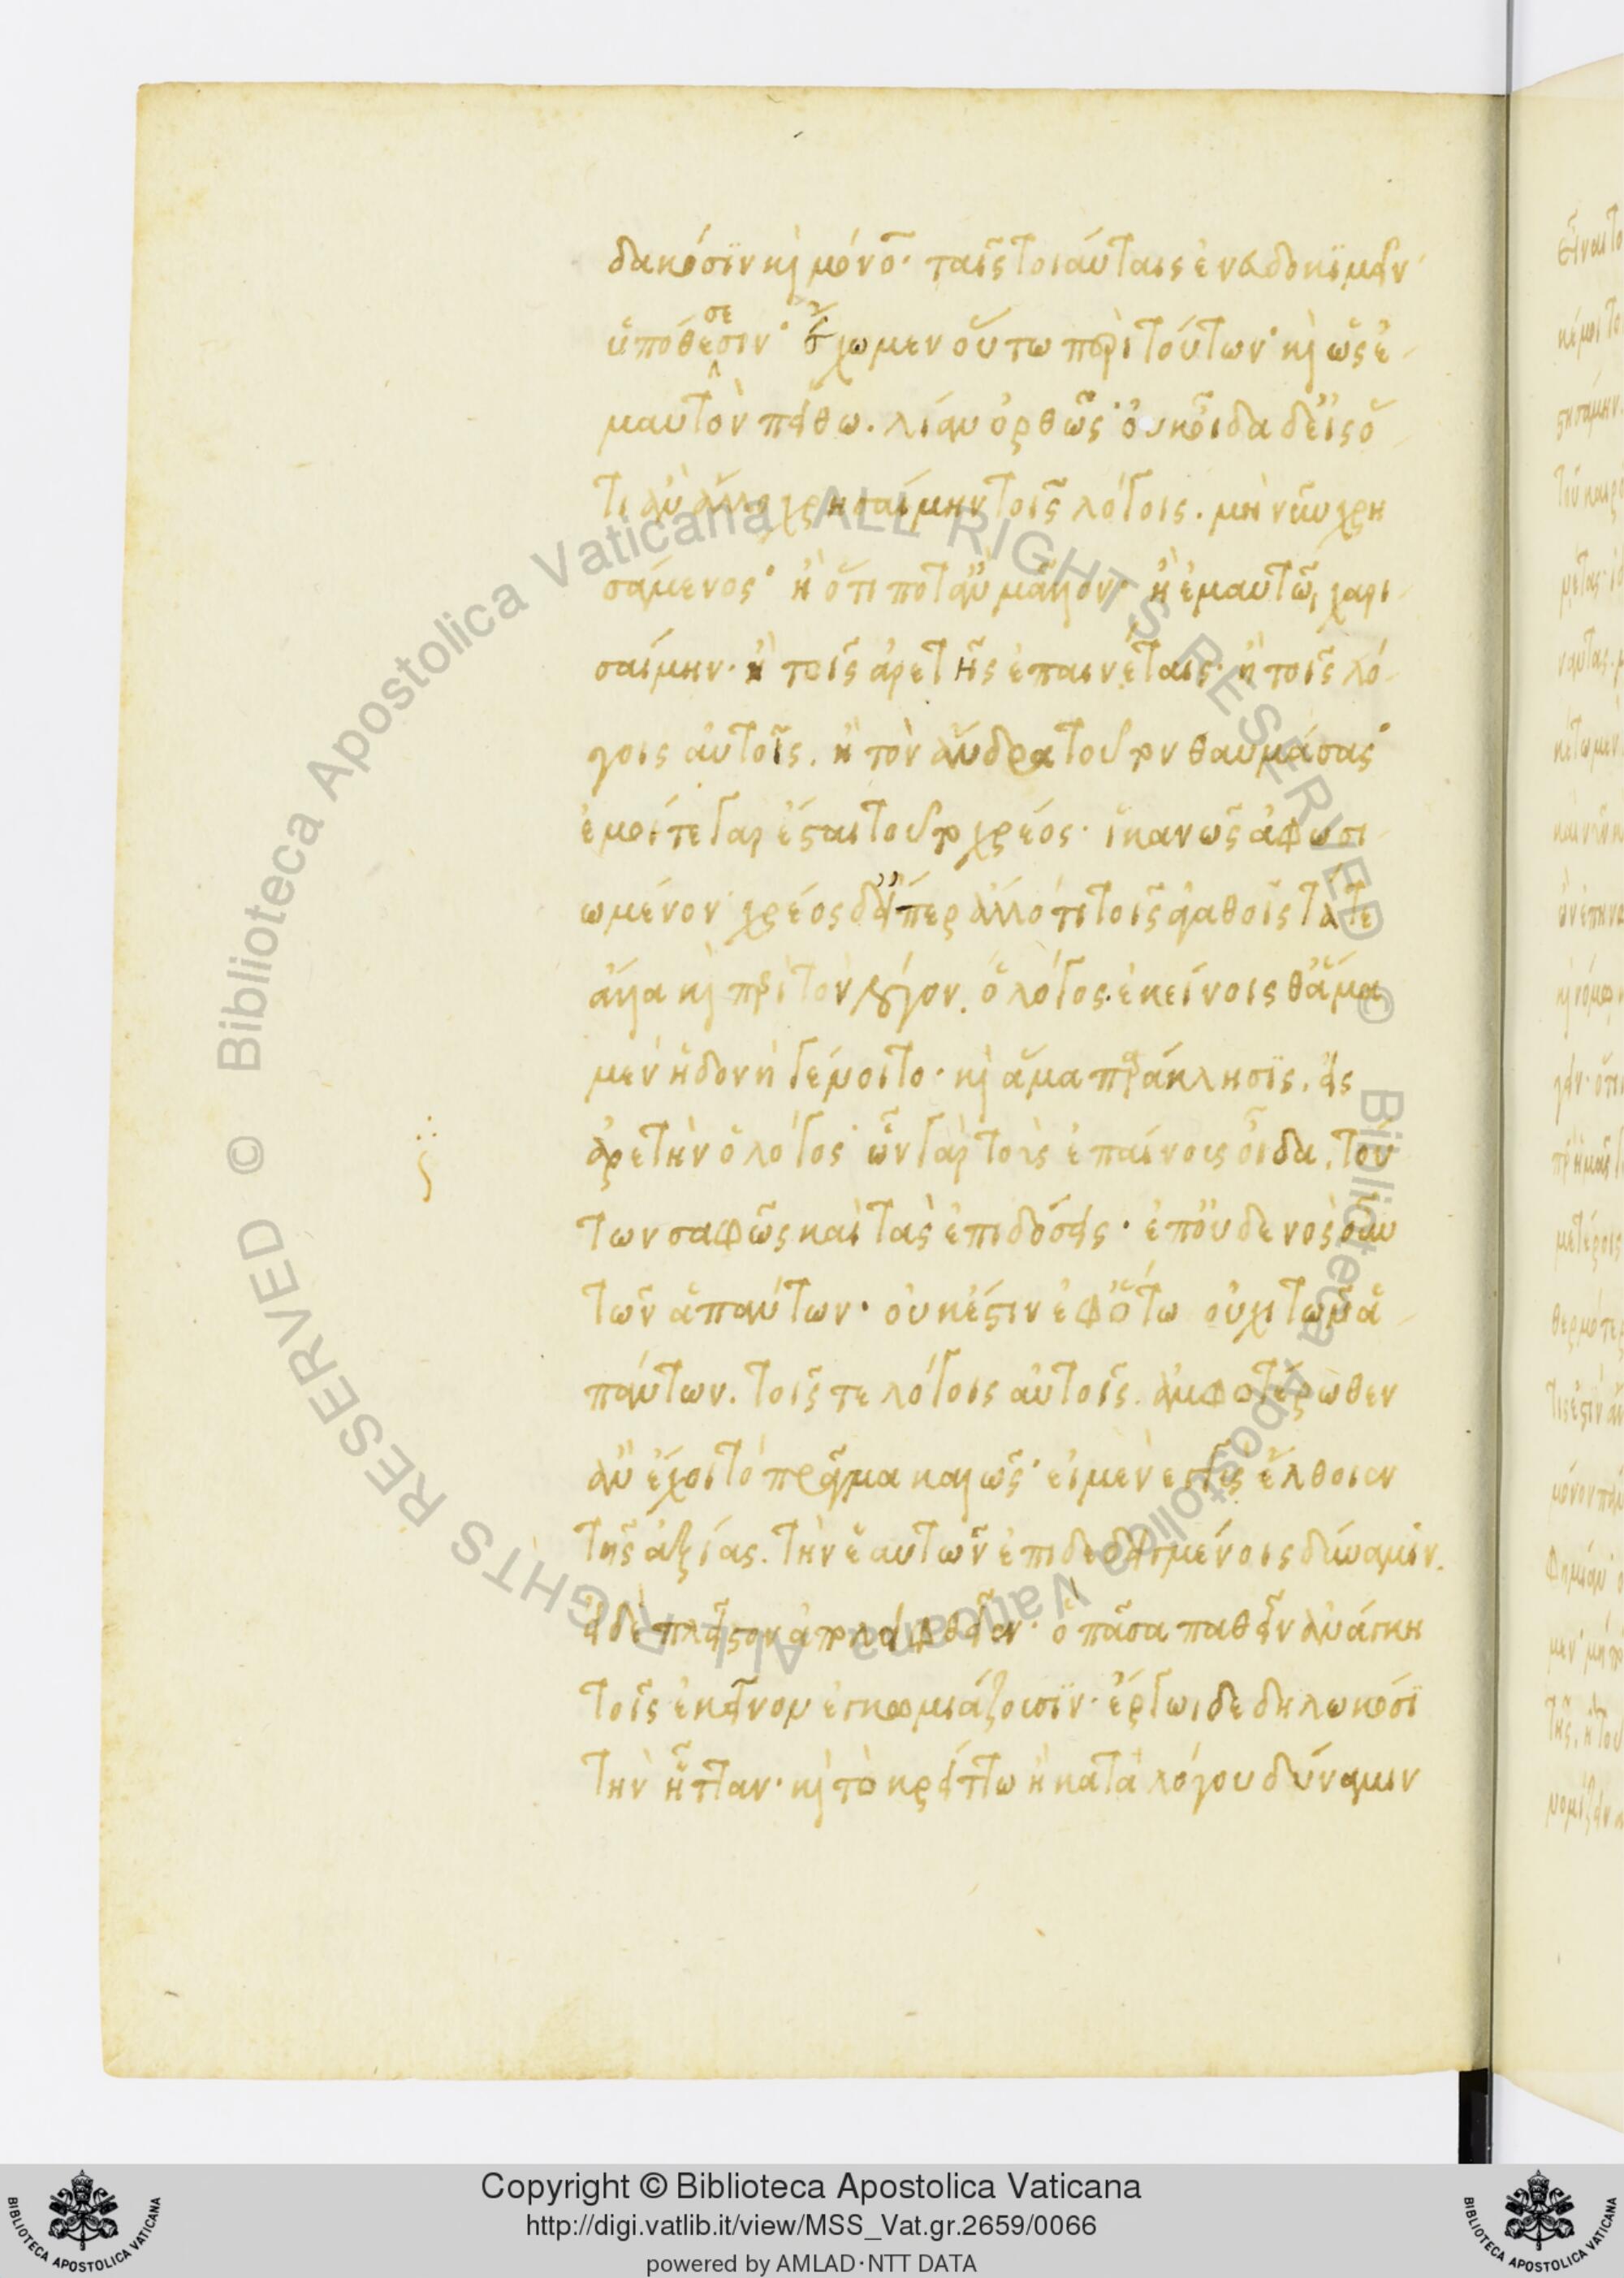 δακόσιν καὶ μόνον· ταῖς τοιαύταις ἐνευδοκιμεῖν
ὑποθέσεσιν· ἔχωμεν οὕτω περὶ τούτων· καὶ ὡς ἐ-
μαυτὸν πείθω. λίαν ὀρθῶς· οὐκ οἶδα δ' εἰς ὅ
τι ἂν ἄλλο χρησαίμην τοῖς λόγοις. μὴ νῦν χρη
σάμενος· ἢ ὅτι ποτ' ἂν μᾶλλον· ἢ ἐμαυτῶι χαρι-
σαίμην· ἢ τοῖς ἀρετῆς ἐπαινέταις· ἢ τοῖς λό-
γοις αὐτοῖς. ἢ τὸν ἄνδρα τοῦτον θαυμάσας·
ἐμοί τε γὰρ ἔσται τοῦτο χρέος· ἱκανῶς ἀφωσι-
ωμένον χρέος δ' εἴπερ ἄλλό τι τοῖς ἀγαθοῖς τά τε
ἄλλα καὶ περὶ τὸν λόγον. ὁ λόγος· ἐκείνοις θ' ἅμα
μὲν ἡδονὴ γένοιτο· καὶ ἅμα παράκλησις. εἰς
ἀρετὴν ὁ λόγος· ὧν γὰρ τοὺς ἐπαίνους οἶδα. τού
των σαφῶς καὶ τὰς ἐπιδόσεις· ἐπ' οὐδενὸς οὖν
τῶν ἁπάντων· οὐκ ἔστιν ἐφ' ὅτω οὐχὶ τῶν ἁ-
πάντων. τοῖς τε λόγοις αὐτοῖς. ἀμφοτέρωθεν
ἂν ἔχοι τὸ πρᾶγμα καλῶς· εἰ μὲν ἐγγὺς ἔλθοιεν
τῆς ἀξίας. τὴν ἑαυτῶν ἐπιδεδειγμένοις δύναμιν.
εἰ δὲ πλεῖστον ἀπολειφθεῖεν· ὃ πᾶσα παθεῖν ἀνάγκη
τοῖς ἐκεῖνον ἐγκωμιάζουσιν· ἔργωι δεδηλωκόσι
τὴν ἧτταν· καὶ τὸ κρείττω ἢ κατὰ λόγου δύναμιν
Copyright © Biblioteca Apostolica Vaticana
http://digi.vatlib.it/view/MSS_Vat.gr.2659/0066
powered by AMLAD·NTT DATA